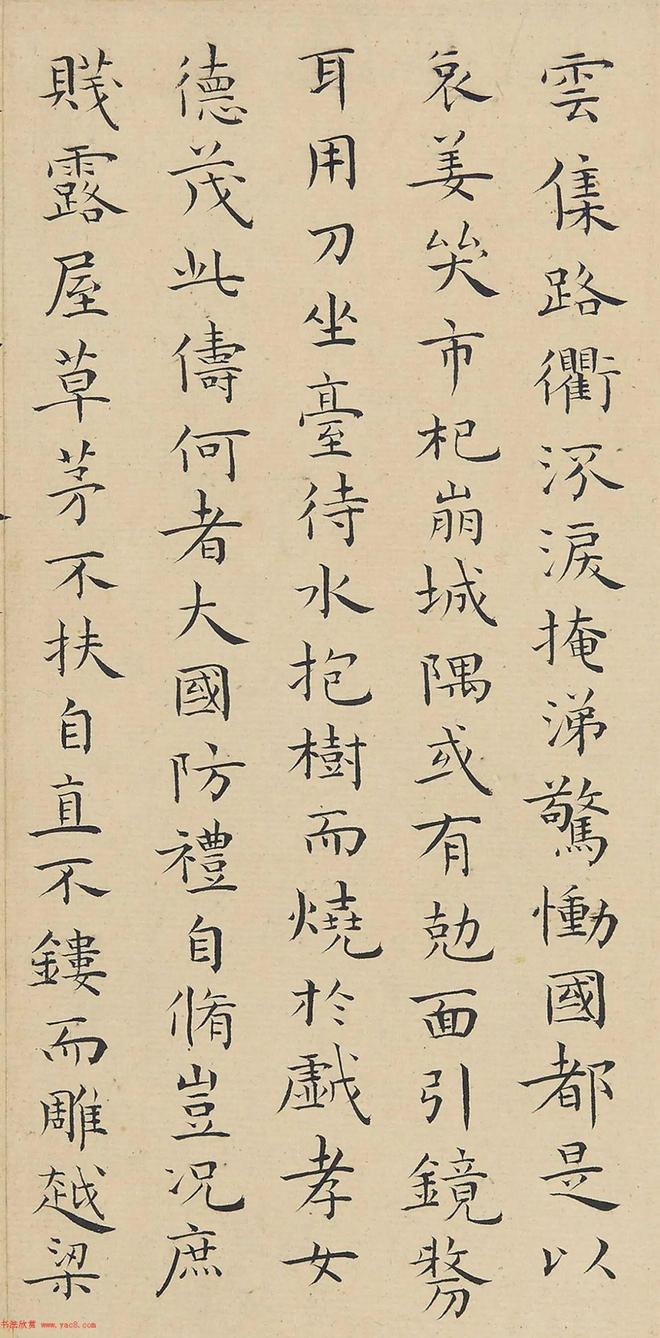 雲集路衢流淚掩涕驚慟國都是以
哀姜哭市杞崩城隅或有勊面引鏡剺
耳用刀坐臺待水抱樹而燒於戯孝女
德茂此儔何者大國防禮自脩豈況庶
賤露屋草茅不扶自直不鏤而雕越梁
书法欣赏 www.yac8.com